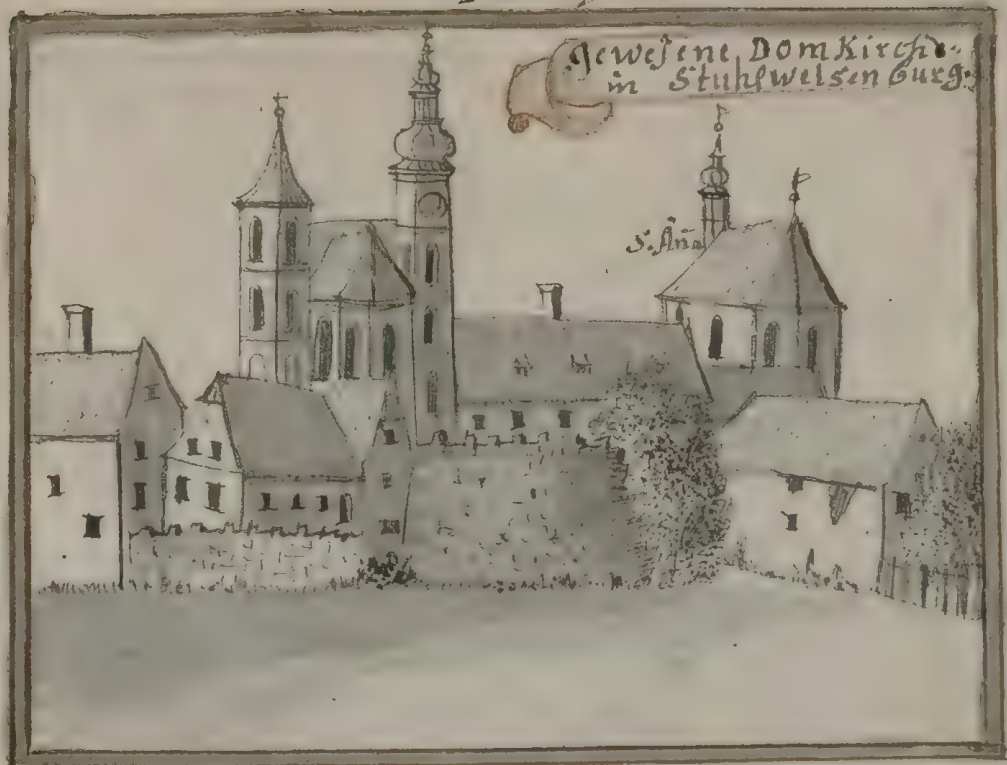 Gewesene DomKirche
in Stuhlweisenburg.
S. Aña